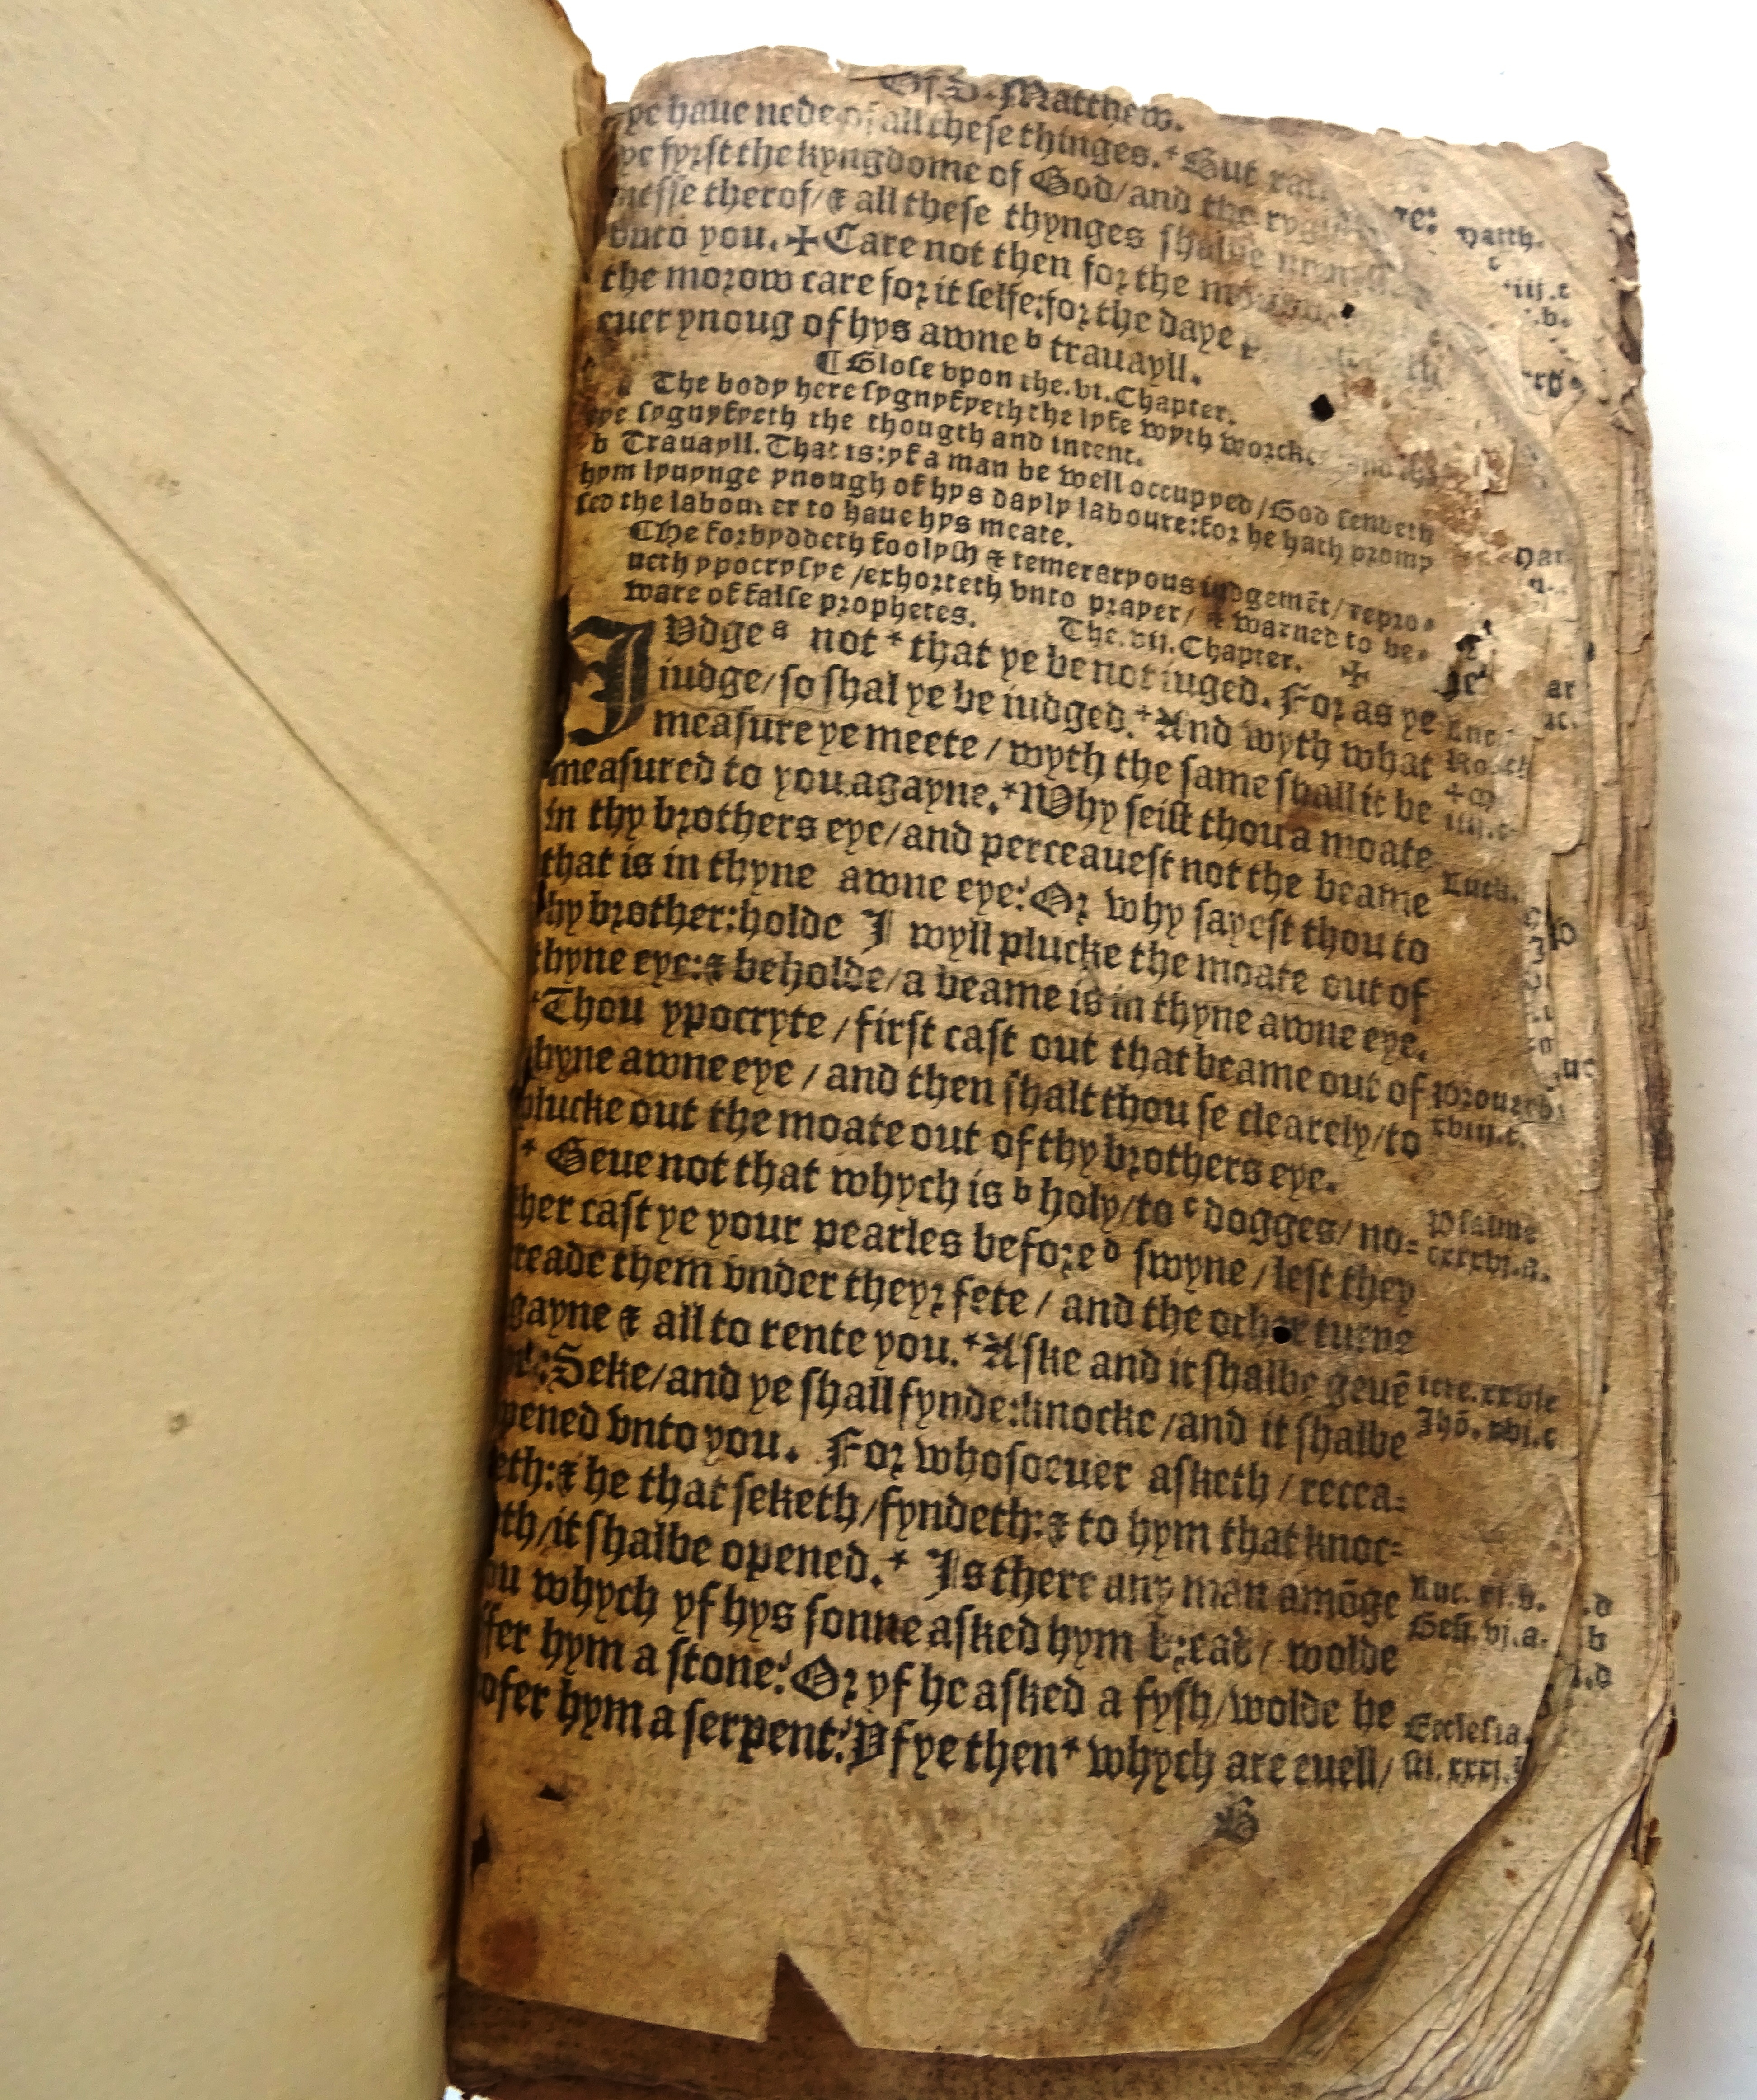 Of.S. Matthew.
ye haue nede of all these thinges.* But
ye fyrst the kyngdome of God/and the
nesse therof/& all these thynges shalbe
vnto you.✠Care not then for the
the morow care for it selfe:for the daye
euer ynoug of hys awne b trauayll.
¶Glose vpon the.vi.Chapter.
The body here sygnyfyeth the lyfe wyth
eye sygnyfyeth the thougth and intent.
b Trauayll.That is:yf a man be well occupyed/God sendeth
hym lyuynge ynough of hys dayly laboure:for he hath promy
sed the labourer to haue hys meate.
¶He forbyddeth foolysh & temeraryous iudgemēt/repro-
ueth ypocrysye/exhorteth vnto prayer/ & warned to be-
ware of false prophetes. The.vij.Chapter. ✠
IVdge a not * that ye be not iuged. For as ye
iudge/so shal ye be iudged.*And wyth what
measure ye meete / wyth the same shall it be
measured to you agayne.*Why seist thou a moate
in thy brothers eye/and perceauest not the beame
that is in thyne awne eye? Or why sayest thou to
thy brother:holde I wyll plucke the moate out of
thyne eye:& beholde/a beame is in thyne awne eye.
*Thou ypocryte / first cast out that beame out of
thyne awne eye / and then shalt thou se clearely/to
plucke out the moate out of thy brothers eye.
* Geue not that whych is b holy/to c dogges/ no=
ther cast ye your pearles before d swyne / lest they
treade them vnder theyr fete / and the other turne
agayne & all to rente you.*Aske and it shalbe geuē
:Seke/and ye shall fynde:knocke /and it shalbe
opened vnto you. For whosoeuer asketh / recea=
eth:& he that seketh/fyndeth:& to hym that knoc=
eth/it shalbe opened.* Is there any man amōge
you whych yf hys sonne asked hym bread / wolde
offer hym a stone? Or yf he asked a fysh/wolde he
ofer hym a serpent? Yf ye then* whych are euell/
B
Luck.
Prouerb.
xviij.c.
Psalme
Jhō. xvi.c
Luc. xi.b.
Geñ. vj.a.
Ecclesia.